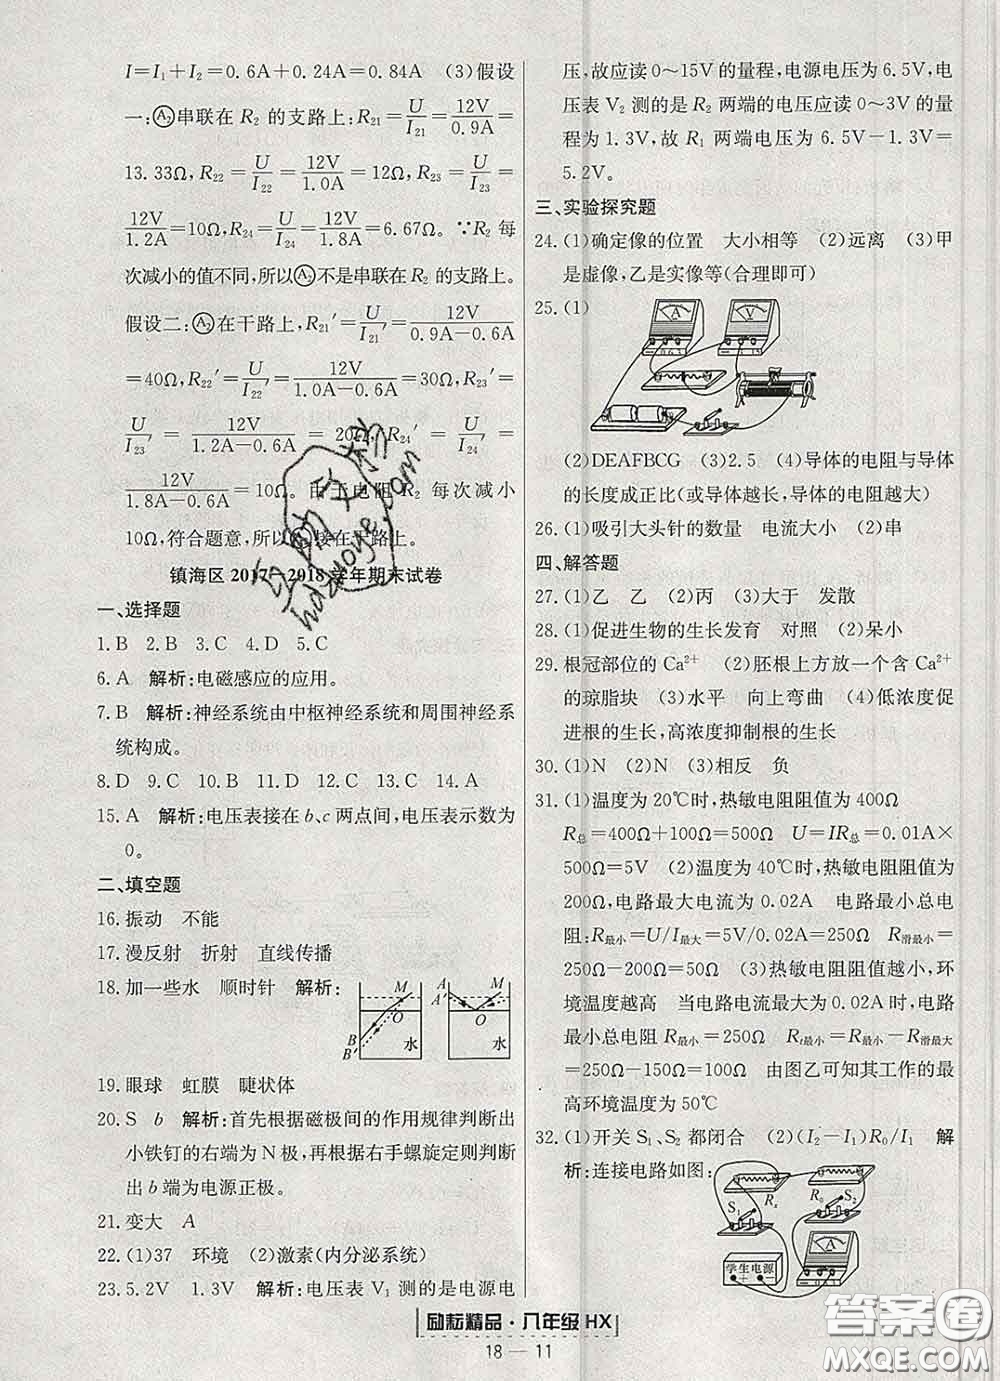 I=I₁+I₂=0.6A+0.24A=0.84A (3)假设
一:Ⓐ₂串联在 R₂ 的支路上:R₂₁=U/I₂₁=12V/0.9A=
13.33Ω,R₂₂=U/I₂₂=12V/1.0A=12Ω,R₂₃=U/I₂₃=
12V/1.2A=10Ω,R₂₄=U/I₂₄=12V/1.8A=6.67Ω。∵R₂ 每
次减小的值不同,所以Ⓐ₂不是串联在 R₂ 的支路上。
假设二:Ⓐ₂在干路上,R₂₁′=U/I₂₁′=12V/(0.9A-0.6A)
=40Ω,R₂₂′=U/I₂₂′=12V/(1.0A-0.6A)=30Ω,R₂₃′=
U/I₂₃′=12V/(1.2A-0.6A)=20Ω,R₂₄′=U/I₂₄′=
12V/(1.8A-0.6A)=10Ω。由于电阻 R₂ 每次减小
10Ω,符合题意,所以Ⓐ₂接在干路上。
镇海区 2017~2018 学年期末试卷
一、选择题
1. B 2. B 3. C 4. D 5. C
6. A 解析:电磁感应的应用。
7. B 解析:神经系统由中枢神经系统和周围神经系
统构成。
8. D 9. C 10. B 11. D 12. C 13. C 14. A
15. A 解析:电压表接在 b、c 两点间,电压表示数为
0。
二、填空题
16. 振动 不能
17. 漫反射 折射 直线传播
18. 加一些水 顺时针 解析:
M
O
B
B′
水
A
A′
M
O
水
19. 眼球 虹膜 睫状体
20. S b 解析:首先根据磁极间的作用规律判断出
小铁钉的右端为 N 极,再根据右手螺旋定则判断
出 b 端为电源正极。
21. 变大 A
22. (1)37 环境 (2)激素(内分泌系统)
23. 5.2V 1.3V 解析:电压表 V₁ 测的是电源电
压,故应读 0～15V 的量程,电源电压为 6.5V,电
压表 V₂ 测的是 R₂ 两端的电压应读 0～3V 的量
程为 1.3V,故 R₁ 两端电压为 6.5V－1.3V＝
5.2V。
三、实验探究题
24. (1)确定像的位置 大小相等 (2)远离 (3)甲
是虚像,乙是实像等(合理即可)
25. (1)
A
V
(2)DEAFBCG (3)2.5 (4)导体的电阻与导体
的长度成正比(或导体越长,导体的电阻越大)
26. (1)吸引大头针的数量 电流大小 (2)串
四、解答题
27. (1)乙 乙 (2)丙 (3)大于 发散
28. (1)促进生物的生长发育 对照 (2)呆小
29. 根冠部位的 Ca²⁺ (2)胚根上方放一个含 Ca²⁺
的琼脂块 (3)水平 向上弯曲 (4)低浓度促
进根的生长,高浓度抑制根的生长
30. (1)N (2)N (3)相反 负
31. (1)温度为 20℃时,热敏电阻阻值为 400Ω
R总=400Ω+100Ω=500Ω U=IR总=0.01A×
500Ω=5V (2)温度为 40℃时,热敏电阻阻值为
200Ω,电路最大电流为 0.02A 电路最小总电
阻:R最小=U/I最大=5V/0.02A=250Ω R滑最小
=250Ω-200Ω=50Ω (3)热敏电阻阻值越小,环
境温度越高 当电路电流最大为 0.02A 时,电路
最小总电阻 R最小=250Ω Rt最小=R最小-R滑最大
=250Ω-150Ω=100Ω 由图乙可知其工作的最
高环境温度为 50℃
32. (1)开关 S₁、S₂ 都闭合 (2)(I₂-I₁)R₀/I₁ 解
析:连接电路如图:
Rₓ
S₁
R₀
S₂
A
学生电源
励耘精品·八年级 HX
18 — 11
答案圈
MXQE.COM